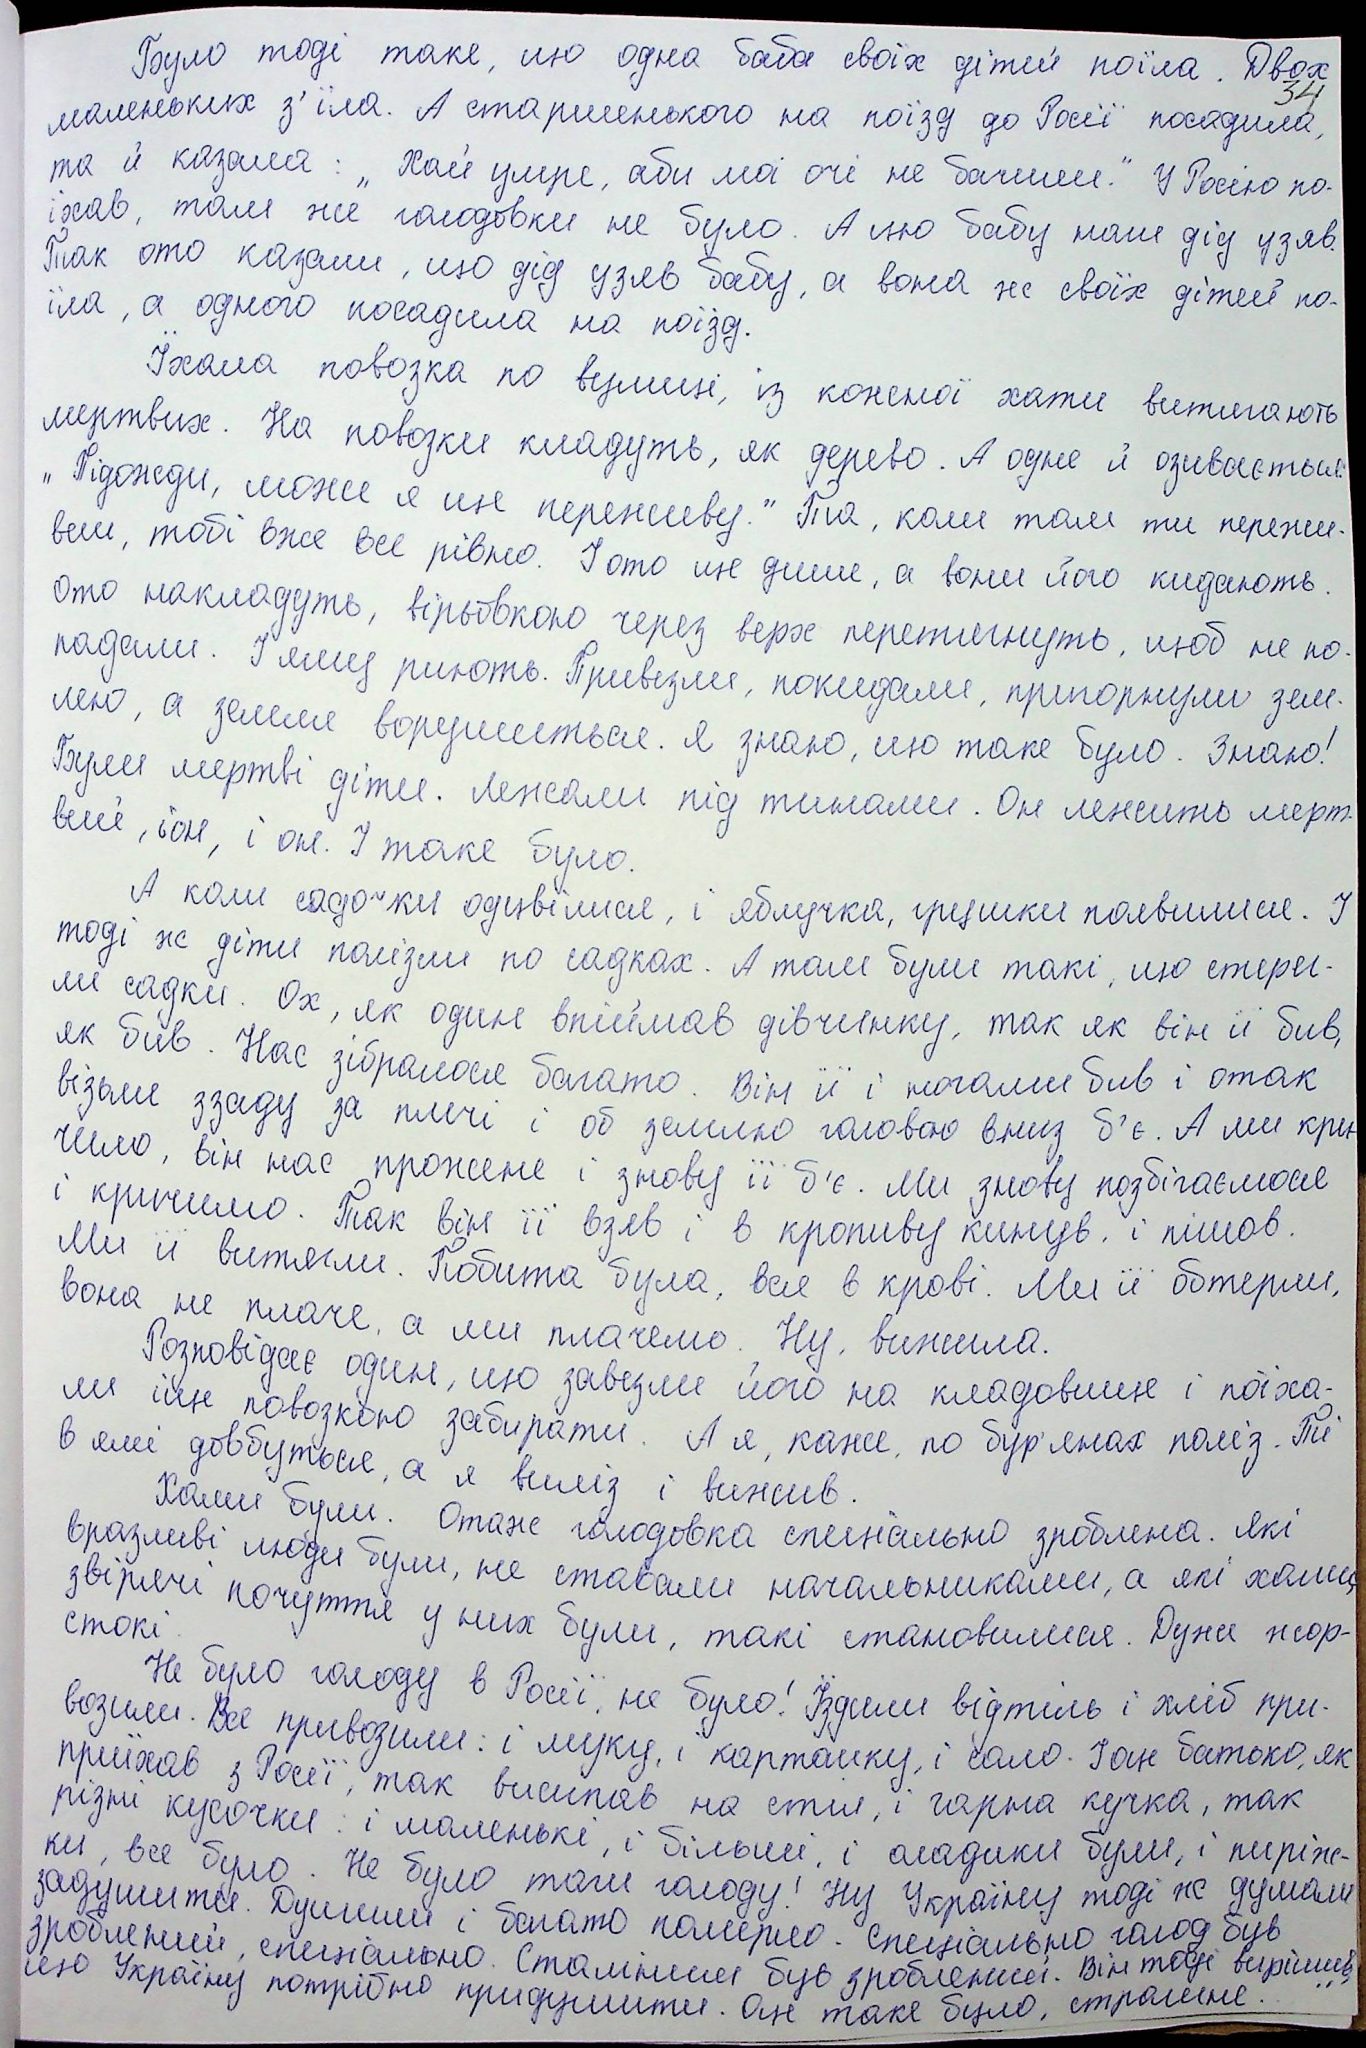 Було тоді таке, що одна баба своїх дітей поїла. Двох
34
маленьких з'їла. А старшенького на поїзд до Росії посадила,
та й казала: „Хай умре, аби мої очі не бачили." У Росію по-
їхав, там же голодовки не було. А цю бабу наш дід узяв.
Так ото казали, що дід узяв бабу, а вона ж своїх дітей по-
їла, а одного посадила на поїзд.
Їхала повозка по вулиці, із кожної хати витягають
мертвих. На повозки кладуть, як дерево. А одне й озивається:
„Підожди, може я ще переживу." Та, коли там ти пережи-
веш, тобі вже все рівно. І ото ще дише, а вони його кидають.
Ото накладуть, вірьовкою через верх перетягнуть, щоб не по-
падали. І яму риють. Привезли, покидали, пригорнули зем-
лею, а земля ворушиться. Я знаю, що таке було. Знаю!
Були мертві діти. Лежали під тинами. Он лежить мерт-
вий, і он, і он. І таке було.
А коли садочки одцвілися, і яблучка, грушки появилися. І
тоді ж діти полізли по садках. А там були такі, що стерег-
ли садки. Ох, як один впіймав дівчинку, так як він її бив,
як бив. Нас зібралося багато. Він її і ногами бив і отак
візьме ззаду за плечі і об землю головою вниз б'є. А ми кри-
чимо, він нас прожене і знову її б'є. Ми знову позбігаємося
і кричимо. Так він її взяв і в кропиву кинув, і пішов.
Ми її витягли. Побита була, вся в крові. Ми її обтерли,
вона не плаче, а ми плачемо. Ну, вижила.
Розповідає один, що завезли його на кладовище і поїха-
ли ще повозкою забирати. А я, каже, по бур'янах поліз. Ті
в ямі довбуться, а я виліз і вижив.
Хами були. Отаж голодовка спеціально зроблена. Які
вразливі люди були, не ставали начальниками, а які хами,
звірячі почуття у них були, такі становилися. Дуже жор-
стокі.
Не було голоду в Росії, не було! Їздили відтіль і хліб при-
возили. Все привозили: і муку, і картошку, і сало. І он батько, як
приїхав з Росії, так висипав на стіл, і гарна кучка, так
різні кусочки: і маленькі, і більші, і оладики були, і пиріж-
ки, все було. Не було там голоду! Ну Україну тоді ж думали
задушити. Душили і багато померло. Спеціально голод був
зроблений, спеціально. Сталіним був зроблений. Він тоді вирішив,
що Україну потрібно придушити. Он таке було, страшне...